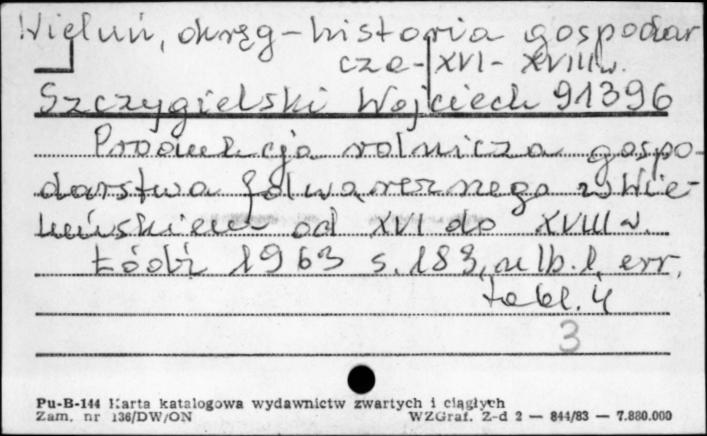 Wieluń, okręg - historia gospodar
cza - XVI - XVIII w.
Szczygielski Wojciech 91396
Produkcja rolnicza gospo-
darstwa folwarcznego w Wie-
luńskiem od XVI do XVIII w.
Łódź 1963 s. 183, nlb. 1, err.
tabl. 4
3
Pu-B-144 Karta katalogowa wydawnictw zwartych i ciągłych
Zam. nr 136/DW/ON WZGraf. Z-d 2 — 844/83 — 7.880.000